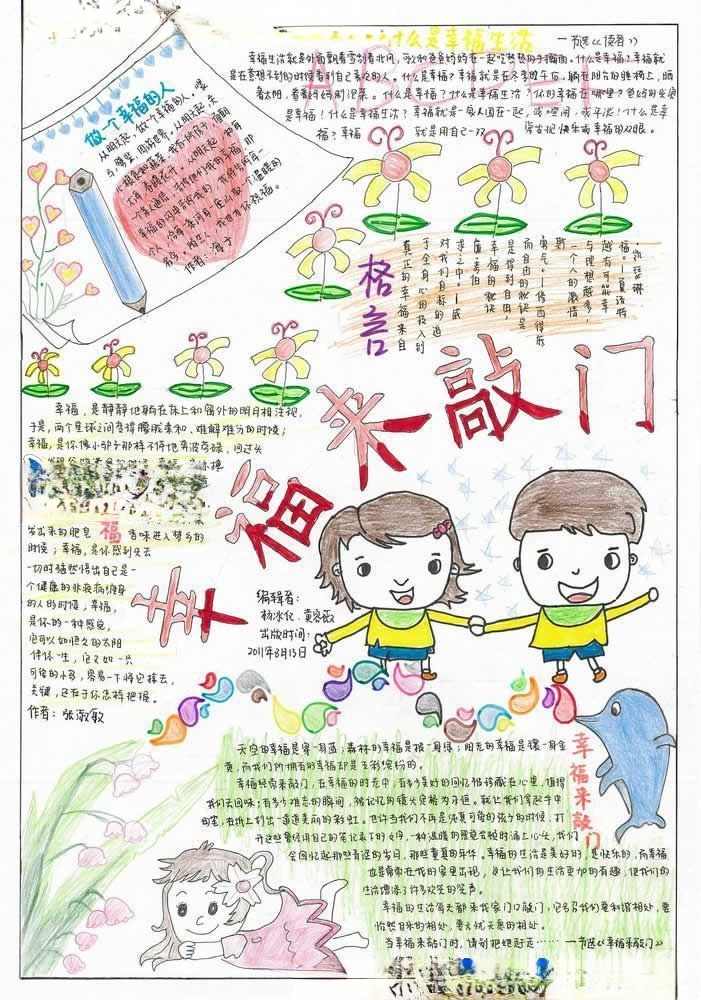 什么是幸福生活
—节选《读者》
幸福生活就是外面飘着雪刮着北风,
是在意想不到的时候看到自己喜欢的人。什么是幸福?幸福就是在冬季的午后,躺在阳台的
什么是幸福?什么是幸福生活?你的幸福在哪里?
是幸福!什么是幸福生活?幸福就是一家人围在一起,
福?幸福 就是用自己一双 发现快乐或幸福的双眼。
做个幸福的人
从明天起,做个幸福的人,喂
马,劈柴,周游世界,从明天起,关
心粮食和蔬菜,我有一所房子,面朝
大海,春暖花开。从明天起,和每
一个亲人通信,告诉他们我的幸福,那
幸福的闪电告诉我的,我将告诉每一
个人,给每一条河每一座山取个温暖的
名字,陌生人,我也为你祝福。
作者:海子
格言
真正的幸福来自
于全身心的投入到
对我们目标的追
求之中。—威
廉·考伯
幸福的秘诀
是得到自由,
而自由的秘诀是
勇气。—修西得底
斯
一个人的激情
与理想越多,
越有可能幸
福。—夏洛特
·凯瑟琳
幸福来敲门
幸福,是静静地躺在床上和窗外的明月相注视,
于是,两个星球之间变得朦胧柔和、难解难分的时候;
幸福,是你像小驴子那样不停地奔波劳碌,回过头
发出来的肥皂 福 香味进入梦乡的
时候;幸福,是你感到失去
一切时猛然悟出自己是一
个健康的非疾病缠身
的人的时候,幸福,
是你的一种感觉,
它可以如恒久的太阳
伴你一生,它又如一只
可怜的小鸟,容易一下将它掉去,
关键,还在于你怎样把握。
作者:张淑敏
编辑者:
杨冰仪、黄容薇
出版时间:
2011年8月13日
幸福来敲门
天空的幸福是穿一身蓝;森林的幸福是披一身绿;阳光的幸福是镶一身金
黄,而我们所拥有的幸福却是五彩缤纷的。
幸福经常来敲门,在幸福的时光中,有多少美好的回忆被珍藏在心里,值得
我们去回味;有多少难忘的瞬间,被记忆的镜头定格为永恒。就让我们拿起手中
的笔,在纸上划出一道道美丽的彩虹。也许当我们不再是纯真可爱的孩子的时候,打
开这些曾经用自己的笔记录下的文字,一种温暖的感觉会顿时涌上心头,我们
会回忆起那些青涩的岁月,那些童真的年华。幸福的生活是美好的,是快乐的,而幸福
也是常常在我的家里出现,这让我们的生活更加的有趣,使我们的
生活增添了许多欢乐的笑声。
幸福的生活每天都来我家门口敲门,
怡然自乐的相处,要无忧无愁的相处。
当幸福来敲门时,请别把她赶走…… —节选《幸福来敲门》